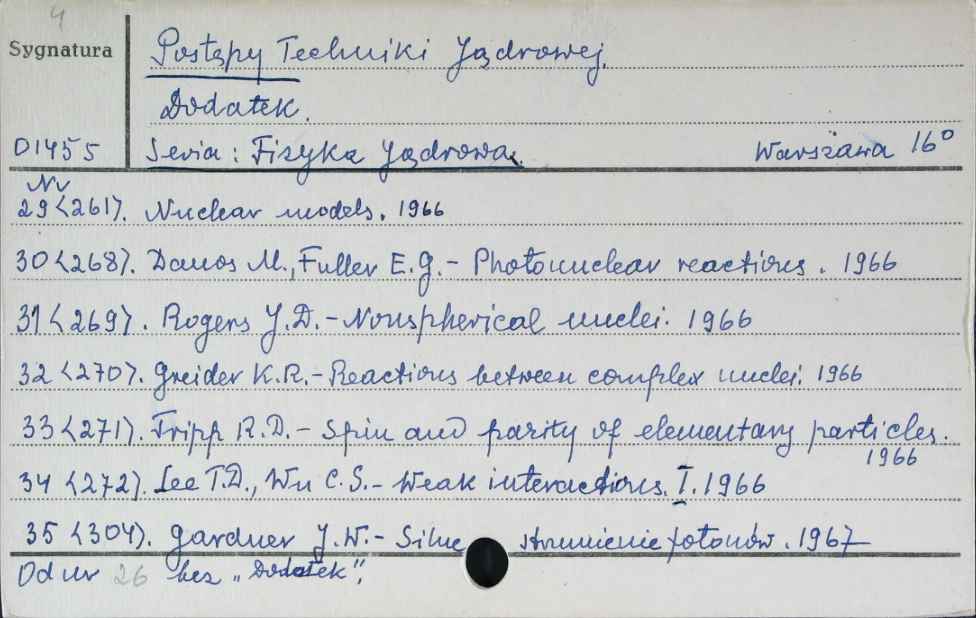 4
Sygnatura
Postępy Techniki Jądrowej.
Dodatek.
D1455 Seria: Fizyka Jądrowa. Warszawa 16°
Nr
29<261>. Nuclear models. 1966
30<268>. Danos M., Fuller E.G. - Photonuclear reactions. 1966
31<269>. Rogers J.D. - Nonspherical nuclei. 1966
32<270>. Greider K.R. - Reactions between complex nuclei. 1966
33<271>. Tripp R.D. - Spin and parity of elementary particles.
1966
34<272>. Lee T.D., Wu C.S. - Weak interactions. I. 1966
35<304>. Gardner J.W. - Silne strumienie fotonów. 1967
Od nr 26 bez „Dodatek”.